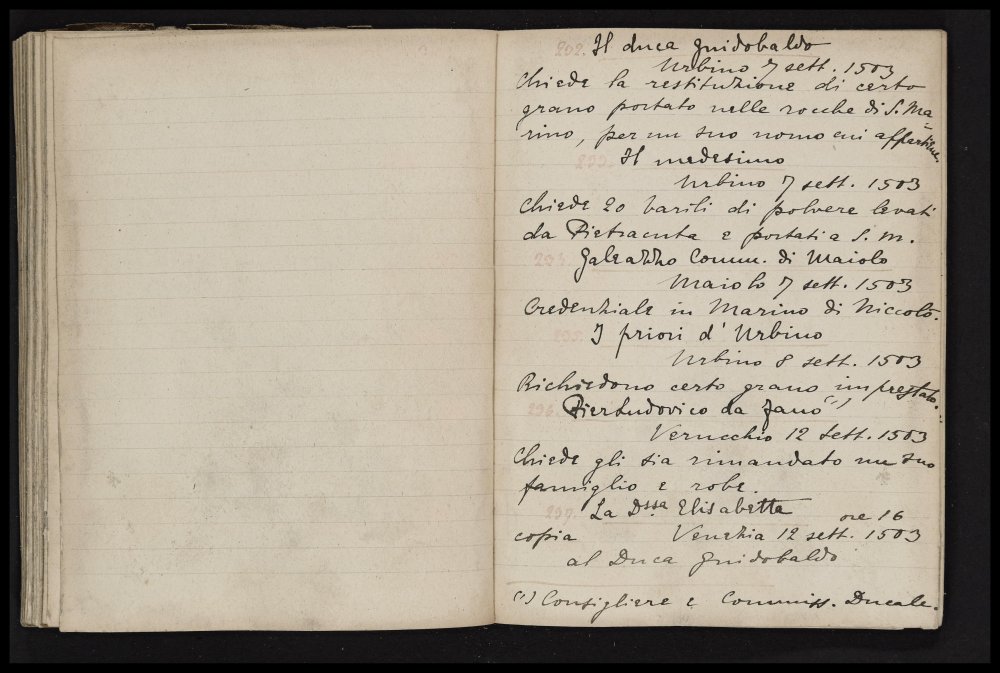 292. Il duca Guidobaldo
Urbino 7 sett. 1503
Chiede la restituzione di certo
grano portato nelle rocche di S. Ma=
rino, per un suo uomo cui appartiene.
293. Il medesimo
Urbino 7 sett. 1503
Chiede 20 barili di polvere levati
da Pietracuta e portati a S. M.
294. Galeazzo Comm. di Maiolo
Maiolo 7 sett. 1503
Credenziale in Marino di Niccolò.
295. I priori d' Urbino
Urbino 8 sett. 1503
Richiedono certo grano imprestato.
296. Pierludovico da Fano (1)
Verucchio 12 sett. 1503
Chiede gli sia rimandato un suo
famiglio e robe.
297. La Dssa Elisabetta
ore 16
copia Venezia 12 sett. 1503
al Duca Guidobaldo
(1) Consigliere e Commiss. Ducale.